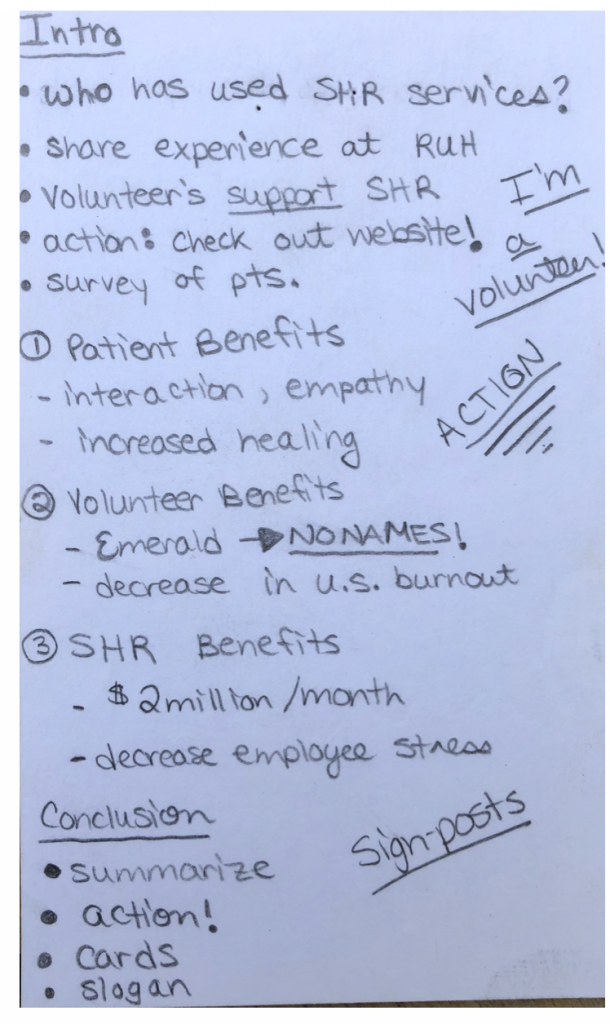 Intro
• who has used SHR services?
• share experience at RUH
• Volunteer's support SHR
• action: check out website!
• survey of pts.
I'm
a
volunteer!
① Patient Benefits
- interaction, empathy
- increased healing
ACTION
② Volunteer Benefits
- Emerald → NO NAMES!
- decrease in u.s. burnout
③ SHR Benefits
- $2million/month
- decrease employee stress
Conclusion
Sign-posts
• summarize
• action!
• cards
• slogan